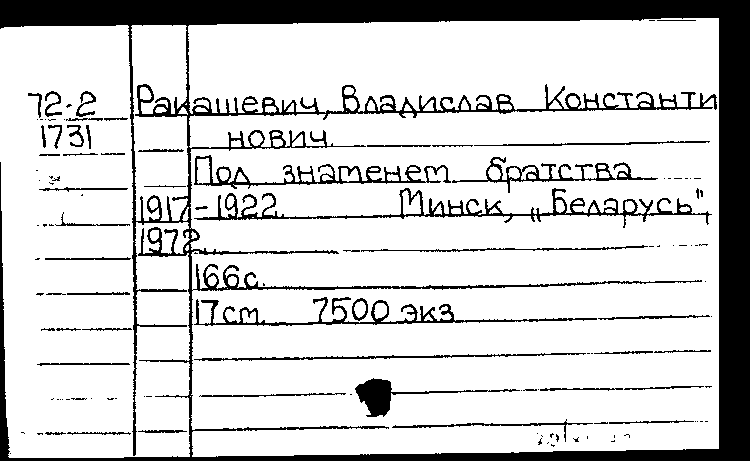 72-2 Ракашевич, Владислав Константи
1731 нович.
Под знаменем братства
1917-1922. Минск, „Беларусь",
1972.
166с.
17см. 7500 экз